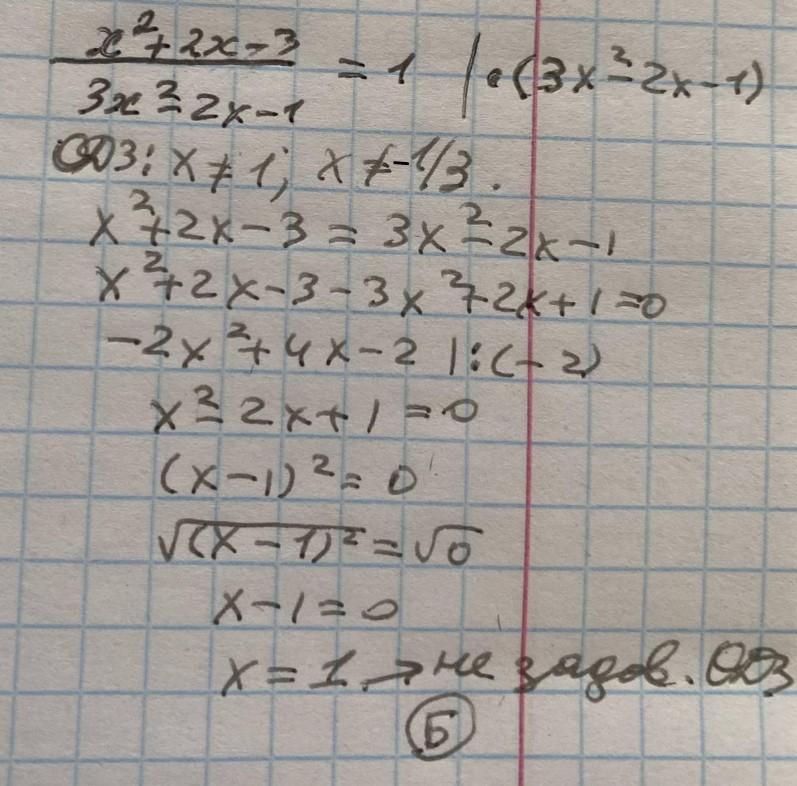 x²+2x-3 / 3x²-2x-1 = 1 | •(3x²-2x-1)
ОДЗ: x≠1; x≠-1/3.
x²+2x-3 = 3x²-2x-1
x²+2x-3-3x²+2x+1=0
-2x²+4x-2 |:(-2)
x²-2x+1=0
(x-1)²=0
√(x-1)²=√0
x-1=0
x=1 → не задов. ОДЗ
Б